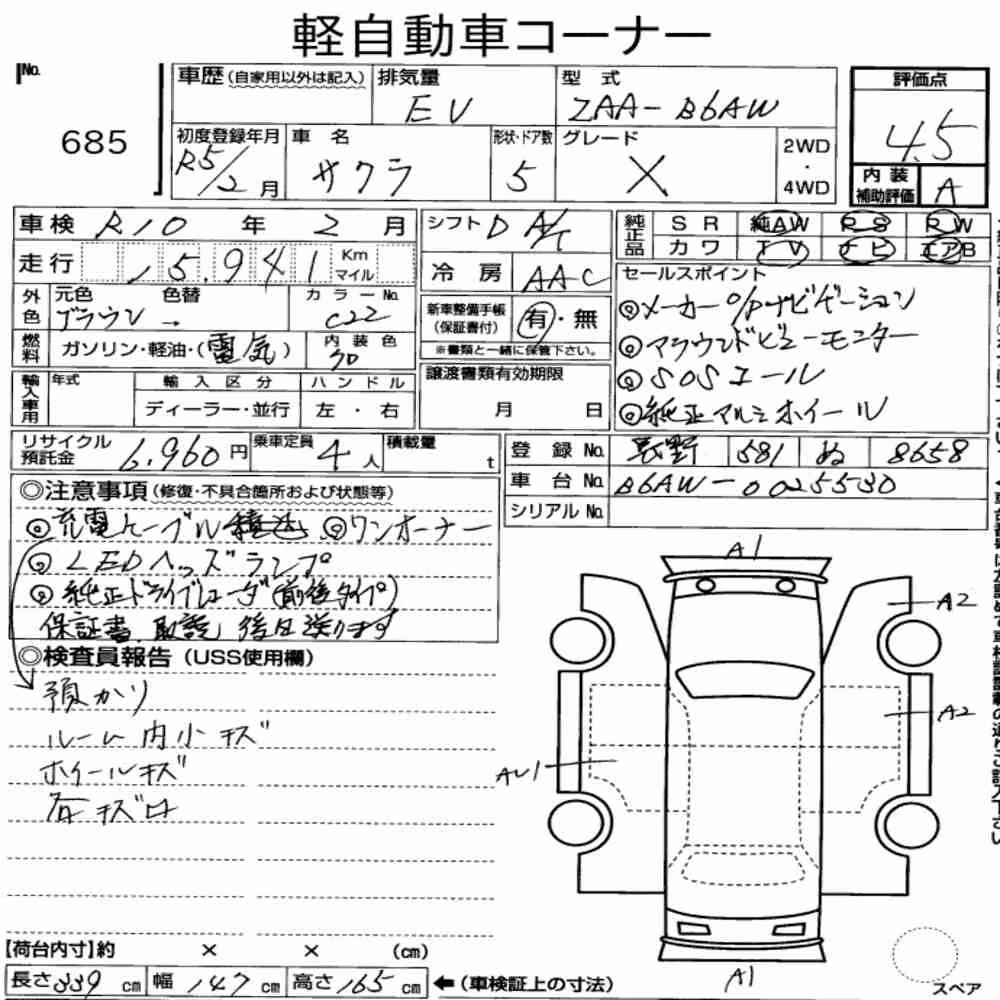 軽自動車コーナー
No.
685
車歴(自家用以外は記入)
排気量
EV
型式
ZAA-B6AW
評価点
4.5
初度登録年月
R5/2月
車名
サクラ
形状・ドア数
5
グレード
X
2WD
・
4WD
内装
補助評価
A
車検 R10年 2月
シフト D A/T
純正品
SR 純AW PS PW
カワ TV ナビ エアB
走行 15.941 Km マイル
冷房 AAC
セールスポイント
◎メーカーo/pナビゲーション
◎アラウンドビューモニター
◎SOSコール
◎純正アルミホイール
外色
元色 色替
ブラウン →
カラーNo.
C22
新車整備手帳
(保証書付)
有・無
※書類と一緒に保管下さい。
燃料
ガソリン・軽油・(電気)
内装色
譲渡書類有効期限
月 日
輸入車用
年式
輸入区分
ディーラー・並行
ハンドル
左・右
リサイクル
預託金 6.960円
乗車定員 4人
積載量 t
登録No. 長野 581 ぬ 8658
車台No. B6AW-0025530
シリアルNo.
◎注意事項(修復・不具合箇所および状態等)
◎充電ケーブル積込 ◎ワンオーナー
◎LEDヘッズランプ
◎純正ドライブレコーダ(前後タイプ)
保証書、取説 後日送ります
◎検査員報告(USS使用欄)
預かり
ルーム内小キズ
ホイールキズ
各キズ凹
A1
A2
A2
AU1
A1
スペア
【荷台内寸】約 × × (cm)
長さ339cm 幅147cm 高さ165cm ←(車検証上の寸法)